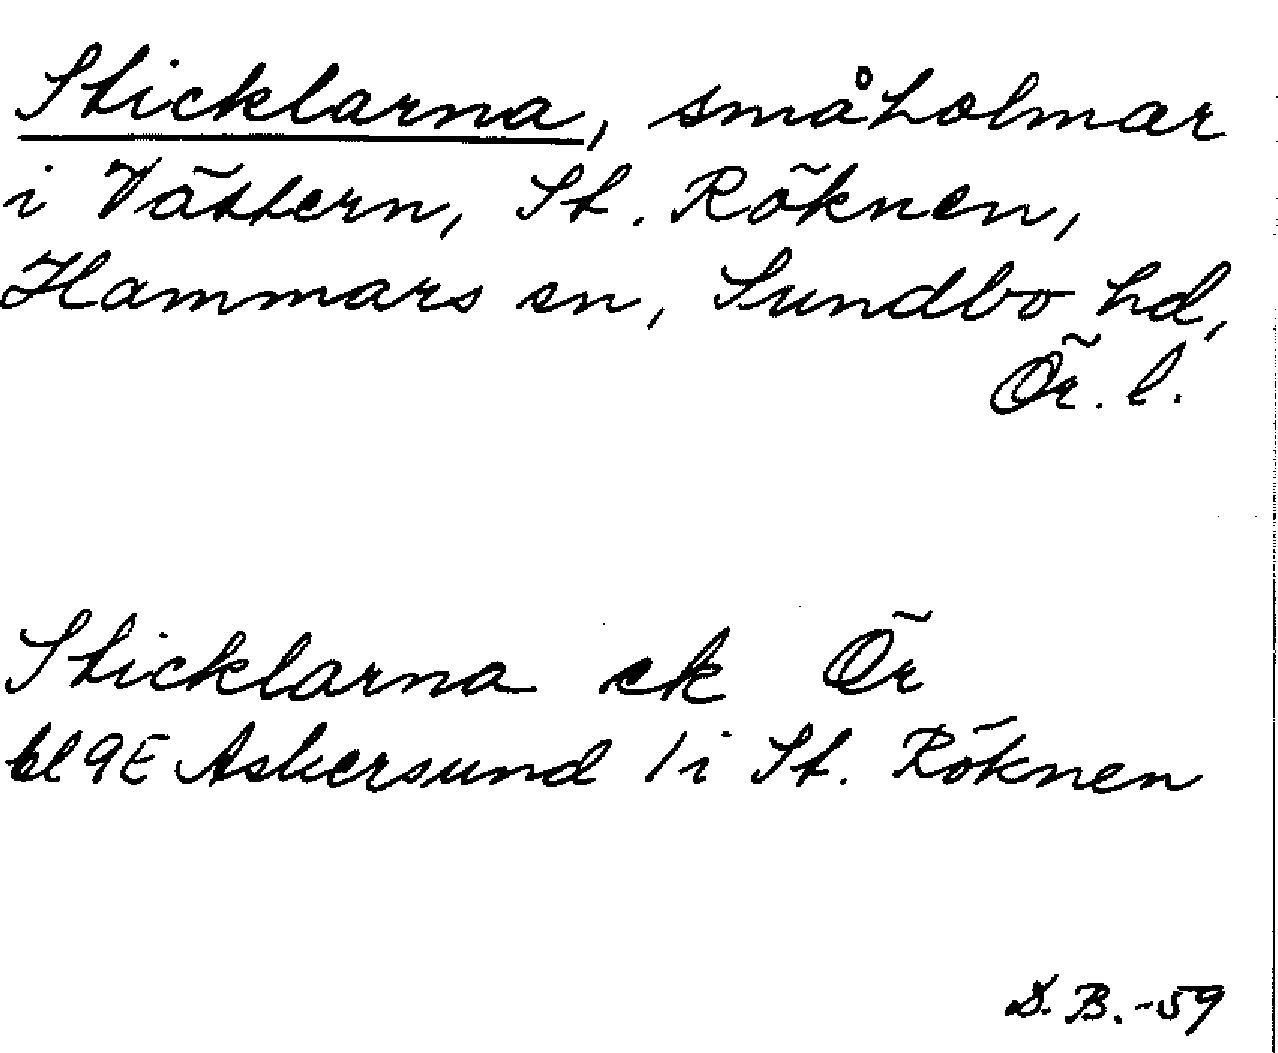 Sticklarna, småholmar
i Vättern, St. Röknen,
Hammars sn, Sundbo hd,
Ör. l.
Sticklarna ek Ör
bl 9E Askersund / i St. Röknen
D.B.-59